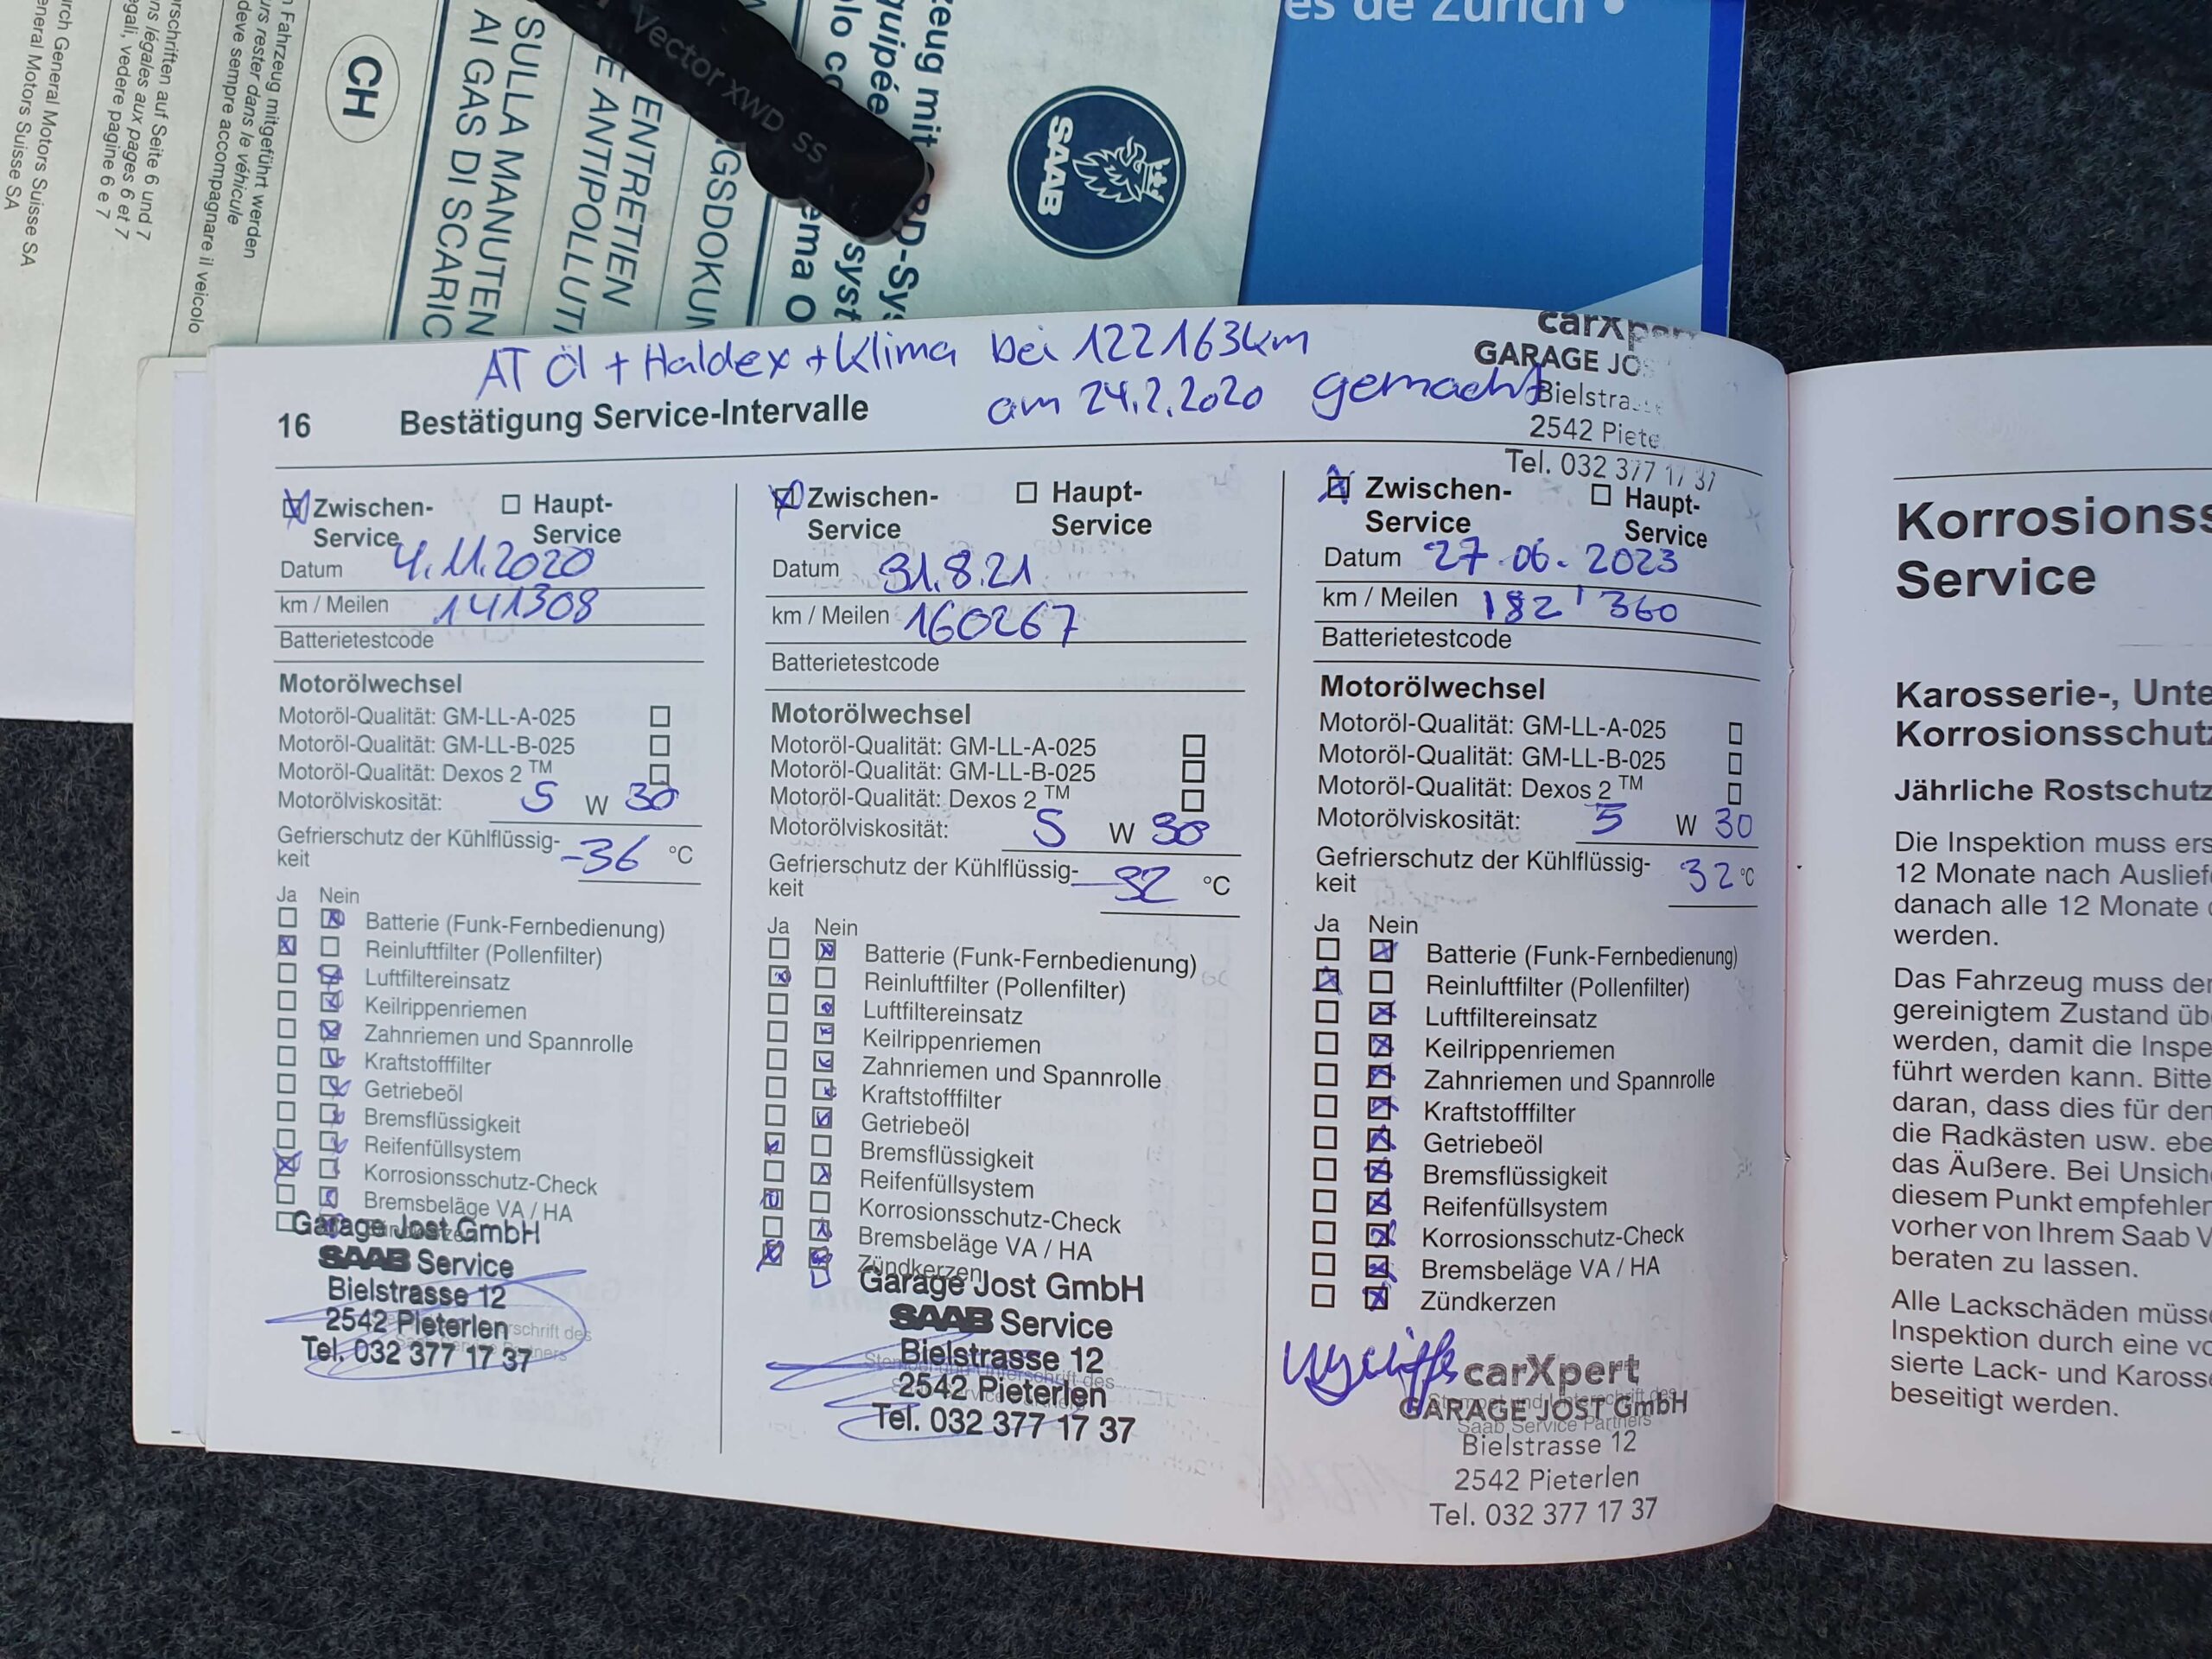 es de Zürich •
SAAB
Vector XWD SS
CH
SULLA MANUTEN
AI GAS DI SCARIC
ENTRETIEN
E ANTIPOLLUTI
GSDOKUM
Fahrzeug mitgeführt werden
rester dans le véhicule
deve sempre accompagnare il veicolo
rschriften auf Seite 6 und 7
ns légales aux pages 6 et 7
egali, vedere pagine 6 e 7
urch General Motors Suisse SA
eneral Motors Suisse SA
AT Öl + Haldex + Klima bei 122163km
am 24.2.2020 gemacht
carXpert
GARAGE JOS
Bielstra
2542 Piete
Tel. 032 377 17 37
16 Bestätigung Service-Intervalle
Zwischen-Service Haupt-Service
Datum 4.11.2020
km / Meilen 141308
Batterietestcode
Motorölwechsel
Motoröl-Qualität: GM-LL-A-025
Motoröl-Qualität: GM-LL-B-025
Motoröl-Qualität: Dexos 2 ™
Motorölviskosität: 5 W 30
Gefrierschutz der Kühlflüssig-
keit -36 °C
Ja Nein
Batterie (Funk-Fernbedienung)
Reinluftfilter (Pollenfilter)
Luftfiltereinsatz
Keilrippenriemen
Zahnriemen und Spannrolle
Kraftstofffilter
Getriebeöl
Bremsflüssigkeit
Reifenfüllsystem
Korrosionsschutz-Check
Bremsbeläge VA / HA
Garage Jost GmbH
SAAB Service
Bielstrasse 12
2542 Pieterlen
Tel. 032 377 17 37
Zwischen-Service Haupt-Service
Datum 31.8.21
km / Meilen 160267
Batterietestcode
Motorölwechsel
Motoröl-Qualität: GM-LL-A-025
Motoröl-Qualität: GM-LL-B-025
Motoröl-Qualität: Dexos 2 ™
Motorölviskosität: 5 W 30
Gefrierschutz der Kühlflüssig-
keit -32 °C
Ja Nein
Batterie (Funk-Fernbedienung)
Reinluftfilter (Pollenfilter)
Luftfiltereinsatz
Keilrippenriemen
Zahnriemen und Spannrolle
Kraftstofffilter
Getriebeöl
Bremsflüssigkeit
Reifenfüllsystem
Korrosionsschutz-Check
Bremsbeläge VA / HA
Zündkerzen
Garage Jost GmbH
SAAB Service
Bielstrasse 12
2542 Pieterlen
Tel. 032 377 17 37
Zwischen-Service Haupt-Service
Datum 27.06.2023
km / Meilen 182'360
Batterietestcode
Motorölwechsel
Motoröl-Qualität: GM-LL-A-025
Motoröl-Qualität: GM-LL-B-025
Motoröl-Qualität: Dexos 2 ™
Motorölviskosität: 5 W 30
Gefrierschutz der Kühlflüssig-
keit 32 °C
Ja Nein
Batterie (Funk-Fernbedienung)
Reinluftfilter (Pollenfilter)
Luftfiltereinsatz
Keilrippenriemen
Zahnriemen und Spannrolle
Kraftstofffilter
Getriebeöl
Bremsflüssigkeit
Reifenfüllsystem
Korrosionsschutz-Check
Bremsbeläge VA / HA
Zündkerzen
carXpert
Stempel und Unterschrift des
GARAGE JOST GmbH
Saab Service Partners
Bielstrasse 12
2542 Pieterlen
Tel. 032 377 17 37
Korrosionss
Service
Karosserie-, Unte
Korrosionsschutz
Jährliche Rostschutz
Die Inspektion muss ers
12 Monate nach Auslief
danach alle 12 Monate
werden.
Das Fahrzeug muss der
gereinigtem Zustand üb
werden, damit die Inspe
führt werden kann. Bitte
daran, dass dies für den
die Radkästen usw. ebe
das Äußere. Bei Unsich
diesem Punkt empfehlen
vorher von Ihrem Saab V
beraten zu lassen.
Alle Lackschäden müsse
Inspektion durch eine vo
sierte Lack- und Karosse
beseitigt werden.